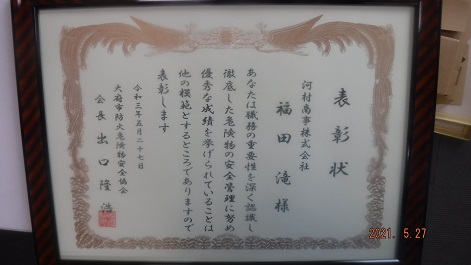 表彰状
河村商事株式会社
福田滝様
あなたは職務の重要性を深く認識し
徹底した危険物の安全管理に努め
優秀な成績を挙げられていることは
他の模範とするところでありますので
表彰します
令和三年五月二十七日
大府市防火危険物安全協会
会長 出口隆浩
2021. 5.27